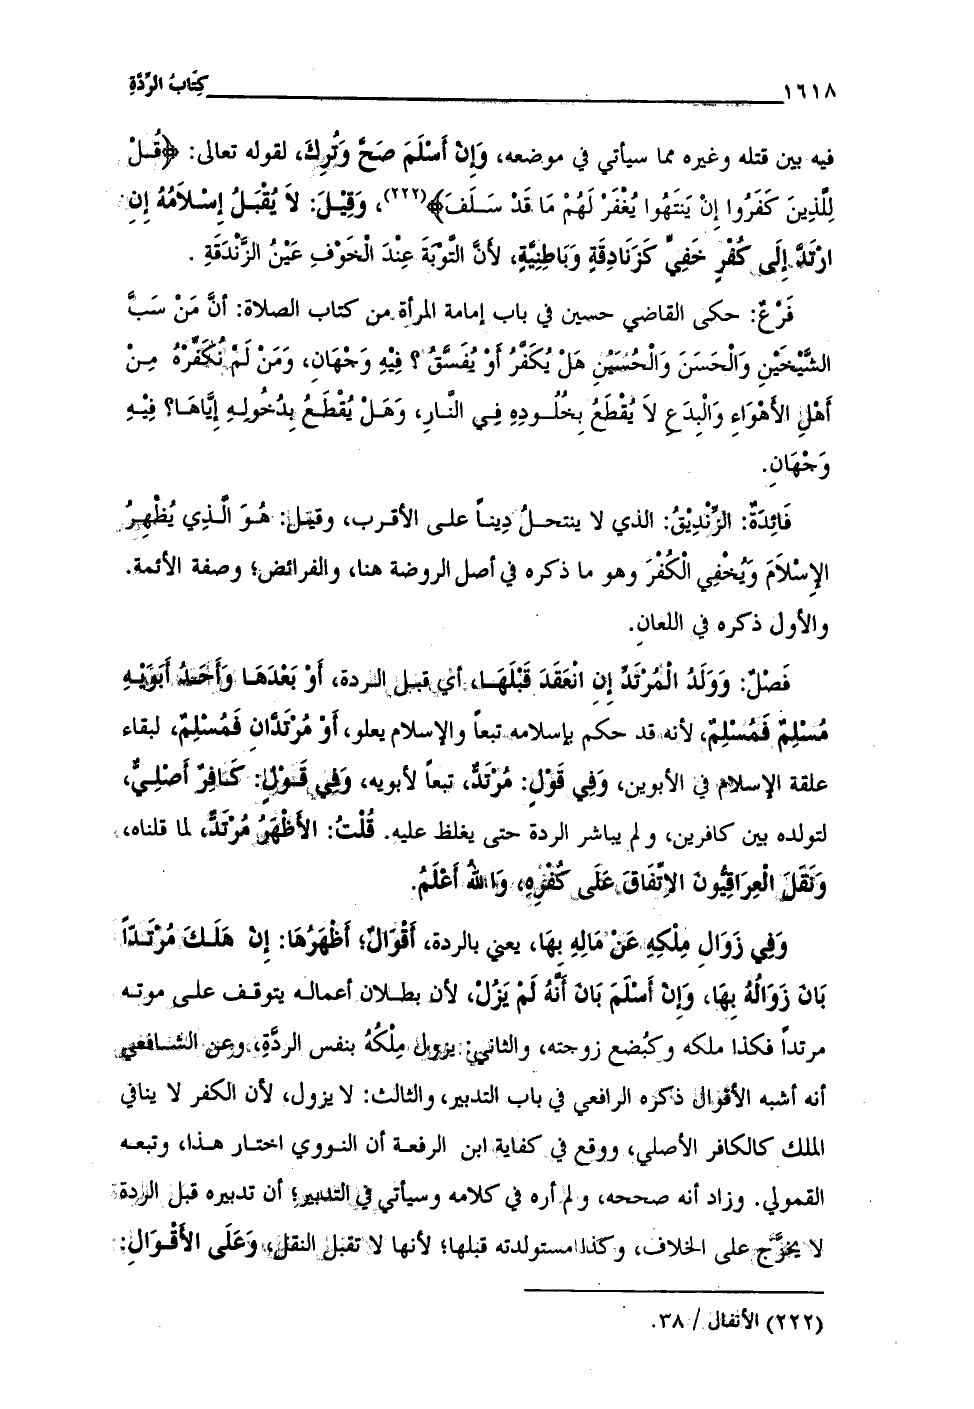 ١٦١٨ كِتَابُ الرِّدَّةِ
فيه بين قتله وغيره مما سيأتي في موضعه، وَإِنْ أَسْلَمَ صَحَّ وَتُرِكَ، لقوله تعالى: ﴿قُلْ
لِلَّذِينَ كَفَرُوا إِنْ يَنتَهُوا يُغْفَرْ لَهُمْ مَا قَدْ سَلَفَ﴾(٢٢٢)، وَقِيْلَ: لاَ يُقْبَلُ إِسْلاَمُهُ إِنِ
ارْتَدَّ إِلَى كُفْرٍ خَفِيٍّ كَزَنَادِقَةٍ وَبَاطِنِيَّةٍ، لأَنَّ التَّوْبَةَ عِنْدَ الْخَوْفِ عَيْنُ الزَّنْدَقَةِ .
فَرْعٌ: حكى القاضي حسين في باب إمامة المرأة من كتاب الصلاة: أَنَّ مَنْ سَبَّ
الشَّيْخَيْنِ وَالْحَسَنَ وَالْحُسَيْنِ هَلْ يُكَفَّرُ أَوْ يُفَسَّقُ ؟ فِيْهِ وَجْهَانِ، وَمَنْ لَمْ نُكَفِّرْهُ مِنْ
أَهْلِ الأَهْوَاءِ وَالْبِدَعِ لاَ يُقْطَعُ بِخُلُودِهِ فِي النَّارِ، وَهَلْ يُقْطَعُ بِدُخُولِهِ إِيَّاهَا؟ فِيْهِ
وَجْهَانِ.
فَائِدَةٌ: الزِّنْدِيْقُ: الذي لا ينتحلُ دِيناً على الأقرب، وقيل: هُوَ الَّذِي يُظْهِرُ
الإِسْلاَمَ وَيُخْفِي الْكُفْرَ وهو ما ذكره في أصل الروضة هنا، والفرائض؛ وصفة الأئمة.
والأول ذكره في اللعانِ.
فَصْلٌ: وَوَلَدُ الْمُرْتَدِّ إِنِ انْعَقَدَ قَبْلَهَا، أي قبل الردة، أَوْ بَعْدَهَا وَأَحَدُ أَبَوَيْهِ
مُسْلِمٌ فَمُسْلِمٌ، لأنه قد حكم بإسلامه تبعاً والإسلام يعلو، أَوْ مُرْتَدَّانِ فَمُسْلِمٌ، لبقاء
علقة الإسلام في الأبوين، وَفِي قَوْلٍ: مُرْتَدٌّ، تبعاً لأبويه، وَفِي قَوْلٍ: كَافِرٌ أَصْلِيٌّ،
لتولده بين كافرين، ولم يباشر الردة حتى يغلظ عليه. قُلْتُ: الأَظْهَرُ مُرْتَدٌّ، لما قلناه،
وَنَقَلَ الْعِرَاقِيُّونَ الاِتِّفَاقَ عَلَى كُفْرِهِ، وَاللهُ أَعْلَمُ.
وَفِي زَوَالِ مِلْكِهِ عَنْ مَالِهِ بِهَا، يعني بالردة، أَقْوَالٌ؛ أَظْهَرُهَا: إِنْ هَلَكَ مُرْتَدّاً
بَانَ زَوَالُهُ بِهَا، وَإِنْ أَسْلَمَ بَانَ أَنَّهُ لَمْ يَزُلْ، لأن بطلان أعماله يتوقف على موته
مرتداً فكذا ملكه وكبُضع زوجته، والثاني: يزول مِلْكُهُ بنفس الردَّةِ، وعن الشافعي
أنه أشبه الأقوال ذكره الرافعي في باب التدبير، والثالث: لا يزول، لأن الكفر لا ينافي
الملك كالكافر الأصلي، ووقع في كفاية ابن الرفعة أن النووي اختار هذا، وتبعه
القمولي. وزاد أنه صححه، ولم أره في كلامه وسيأتي في التدبير؛ أن تدبيره قبل الردة
لا يخرَّج على الخلاف، وكذا مستولدته قبلها؛ لأنها لا تقبل النقل، وَعَلَى الأَقْوَالِ:
(٢٢٢) الأنفال / ٣٨.